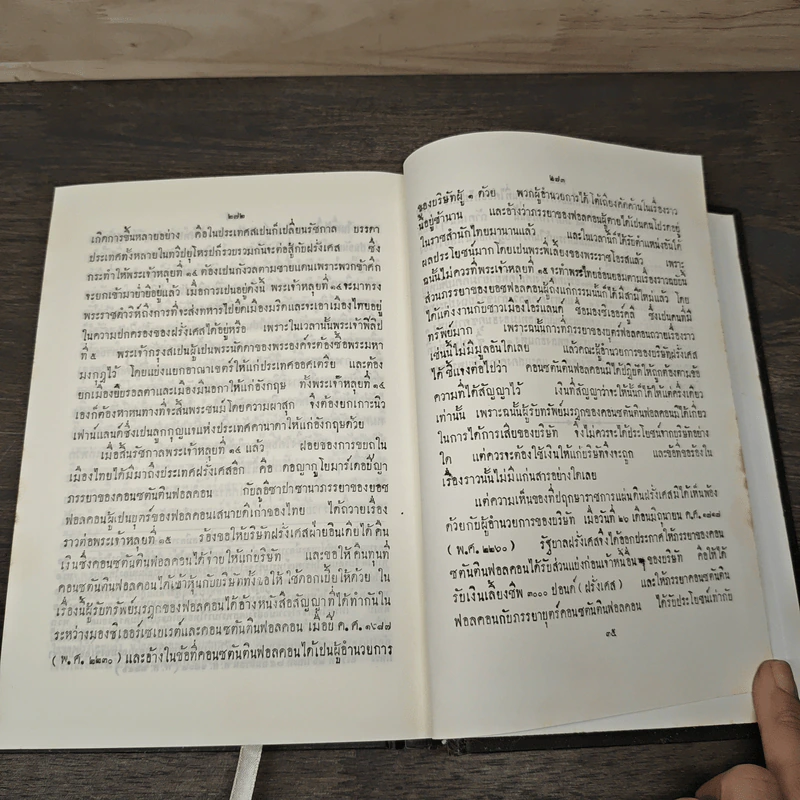 ๒๗๒
เกิดการขึ้นหลายอย่าง คือในประเทศสเปนก็เปลี่ยนรัชกาล บรรดา
ประเทศทั้งหลายในทวีปยุโหรปก็รวบรวมกันจะต่อสู้กับฝรั่งเศส ซึ่ง
กระทำให้พระเจ้าหลุยที่ ๑๔ ต้องเป็นกังวลตามชายแดนเพราะพวกข้าศึก
จะยกเข้ามาย่ำยีอยู่แล้ว เมื่อการเป็นอยู่ดังนี้ พระเจ้าหลุยที่ ๑๔ จะมาทรง
พระราชดำริห์ถึงการที่จะส่งทหารไปยึดเมืองมริดและจะเอาเมืองไทยอยู่
ในความปกครองของฝรั่งเศสได้อยู่หรือ เพราะในเวลานั้นพระเจ้าฟีลิป
ที่ ๕ พระเจ้ากรุงสเปนผู้เป็นพระนัดดาของพระองค์จะต้องซื้อพระมหา
มงกุฎไว้ โดยแบ่งแยกอาณาเขตร์ให้แก่ประเทศออสเตรีย และต้อง
ยกเมืองยิบรอลตาและเมืองมินอกาให้แก่อังกฤษ ทั้งพระเจ้าหลุยที่ ๑๔
เองก็ต้องหาหนทางที่จะสิ้นพระชนม์โดยความผาสุก จึงต้องยกเกาะนิว
เฟาน์แลนด์ซึ่งเป็นลูกกุญแจแห่งประเทศคานาดาให้แก่อังกฤษด้วย
เมื่อสิ้นรัชกาลพระเจ้าหลุยที่ ๑๔ แล้ว ฝอยของการขบถใน
เมืองไทยได้มีมาถึงประเทศฝรั่งเศสอีก คือ คอญากูโยมาร์เดอปีญา
ภรรยาของคอนซตันตินฟอลคอน กับลุอิซาปาซานาภรรยาของยอซ
ฟอลคอนผู้เป็นบุตร์ของฟอลคอนเสนาบดีเก่าของไทย ได้ถวายเรื่อง
ราวต่อพระเจ้าหลุยที่ ๑๕ ร้องขอให้บริษัทฝรั่งเศสฝ่ายอินเดียได้คืน
เงินซึ่งคอนซตันตินฟอลคอนได้จ่ายให้แก่บริษัท และขอให้คืนทุนที่
คอนซตันตินฟอลคอนได้เข้าหุ้นกับบริษัททั้งขอให้ใช้ดอกเบี้ยให้ด้วย ใน
เรื่องนี้ผู้รับทรัพย์มรฎกของฟอลคอนได้อ้างหนังสือสัญญาที่ได้ทำกันใน
ระหว่างมองซิเออร์เซเบเรต์และคอนซตันตินฟอลคอน เมื่อปี ค.ศ. ๑๖๘๗
(พ.ศ. ๒๒๓๐) และอ้างในข้อที่คอนซตันตินฟอลคอนได้เป็นผู้อำนวยการ
๒๗๓
ของบริษัทผู้ ๑ ด้วย พวกผู้อำนวยการได้โต้เถียงคัดค้านในเรื่องราว
นี้อยู่ช้านาน และอ้างว่าภรรยาของฟอลคอนผู้ตายได้เป็นคนโปรดอยู่
ในราชสำนักไทยมานานแล้ว และในเวลานี้ก็ได้รับตำแหน่งอันได้
ผลประโยชน์มากโดยเป็นพระพี่เลี้ยงของพระราชโอรสแล้ว เพราะ
ฉนั้นไม่ควรที่พระเจ้าหลุยที่ ๑๕ จะทำพระไทยอ่อนยอมตามเรื่องราวฉบับนี้
ส่วนภรรยาของยอซฟอลคอนผู้ถึงแก่กรรมนั้นก็ได้มีสามีใหม่แล้ว โดย
ได้แต่งงานกับชาวเมืองไอร์แลนด์ ชื่อมองซิเออร์คูลี ซึ่งเป็นคนที่มี
ทรัพย์มาก เพราะฉนั้นการที่ภรรยาของบุตร์ฟอลคอนถวายเรื่องราว
เช่นนี้ไม่มีมูลอันใดเลย แล้วคณะผู้อำนวยการของบริษัทฝรั่งเศส
ได้ชี้แจงต่อไปว่า คอนซตันตินฟอลคอนมิได้ปฏิบัติให้ถูกต้องตามข้อ
ความที่ได้สัญญาไว้ เงินที่สัญญาว่าจะให้นั้นก็ได้ให้แต่ครึ่งเดียว
เท่านั้น เพราะฉนั้นผู้รับทรัพย์มรฎกของคอนซตันตินฟอลคอนมิได้เกี่ยว
ในการได้การเสียของบริษัท จึงไม่ควรจะได้ประโยชน์จากบริษัทอย่าง
ใด แต่ควรจะต้องใช้เงินให้แก่บริษัทจึงจะถูก และข้อที่ขอร้องใน
เรื่องราวนั้นไม่มีแก่นสารอย่างใดเลย
แต่ความเห็นของที่ปฤกษาราชการแผ่นดินฝรั่งเศสมิได้เห็นพ้อง
ด้วยกับผู้อำนวยการของบริษัท เมื่อวันที่ ๒๖ เดือนมิถุนายน ค.ศ. ๑๗๑๗
(พ.ศ. ๒๒๖๐) รัฐบาลฝรั่งเศสจึงได้ออกประกาศให้ภรรยาของคอน
ซตันตินฟอลคอนได้รับส่วนแบ่งก่อนเจ้าหนี้อื่น ๆ ของบริษัท คือให้ได้
รับเงินเลี้ยงชีพ ๓๐๐๐ ปอนด์ (ฝรั่งเศส) และให้ภรรยาคอนซตันติน
ฟอลคอนกับภรรยาบุตร์คอนซตันตินฟอลคอน ได้รับประโยชน์เท่ากับ
๓๕